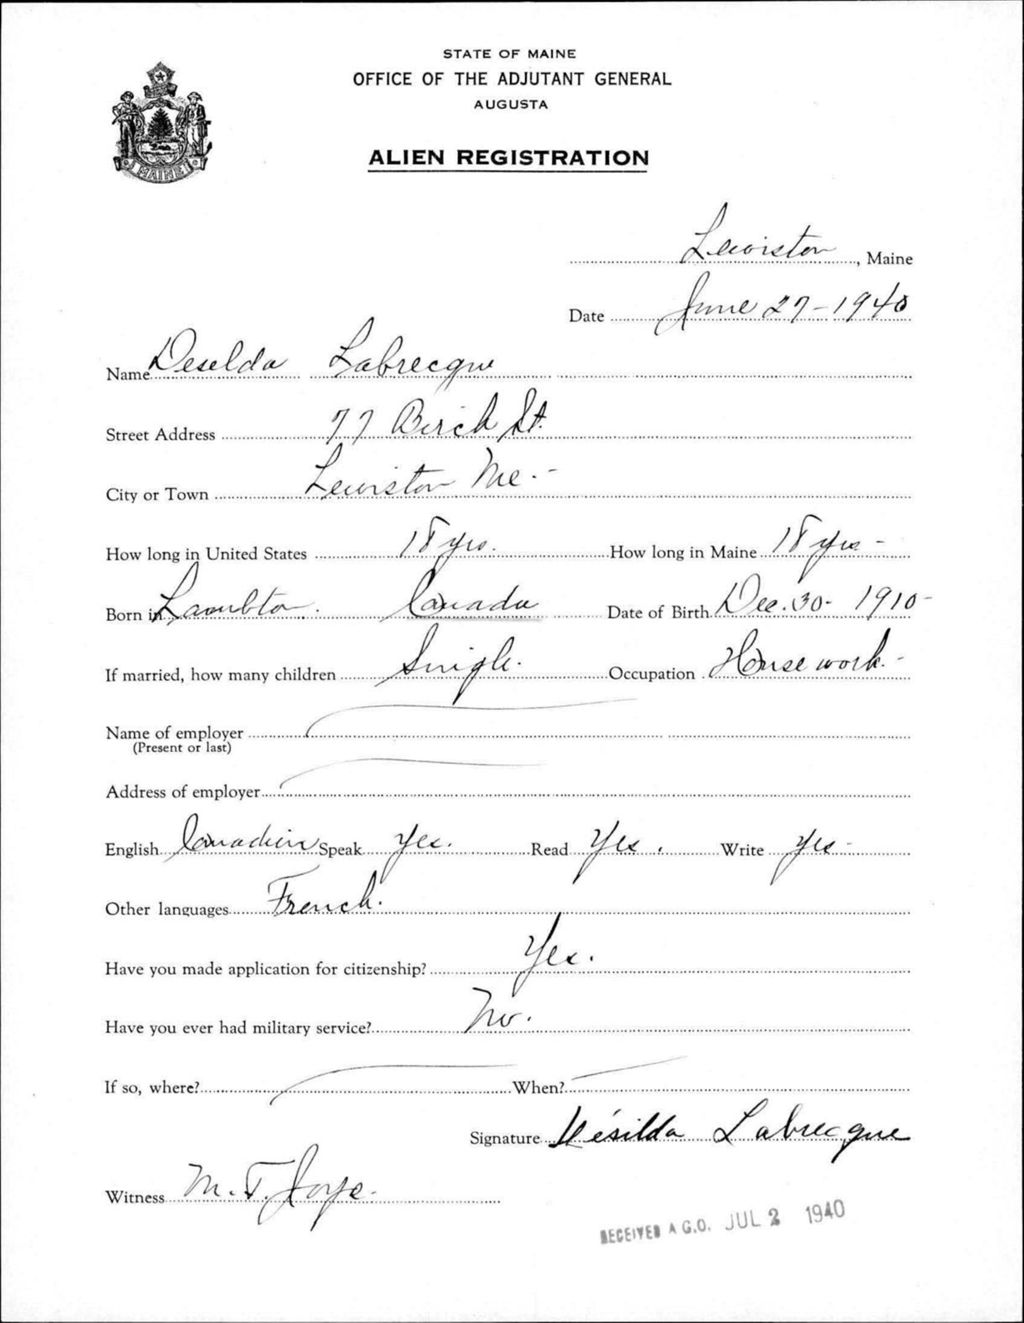 STATE OF MAINE
OFFICE OF THE ADJUTANT GENERAL
AUGUSTA
ALIEN REGISTRATION
MAINE
Lewiston, Maine
Date June 27-1940
Name Deselda Labrecque
Street Address 77 Birch St.
City or Town Lewiston Me.-
How long in United States 18 yrs. How long in Maine 18 yrs-
Born in Lambton. Canada Date of Birth Dec. 30- 1910-
If married, how many children Single. Occupation House work.-
Name of employer
(Present or last)
Address of employer
English Canadien Speak Yes. Read Yes. Write Yes-
Other languages French.
Have you made application for citizenship? Yes.
Have you ever had military service? No.
If so, where? When?
Signature Désilda Labrecque
Witness M. T. Joyce.
RECEIVED A.G.O. JUL 2 1940